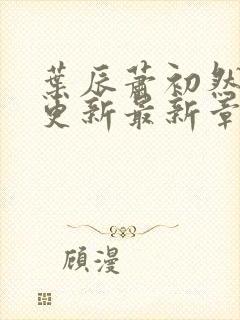 葉辰蕭初然
更新最新章
顾漫